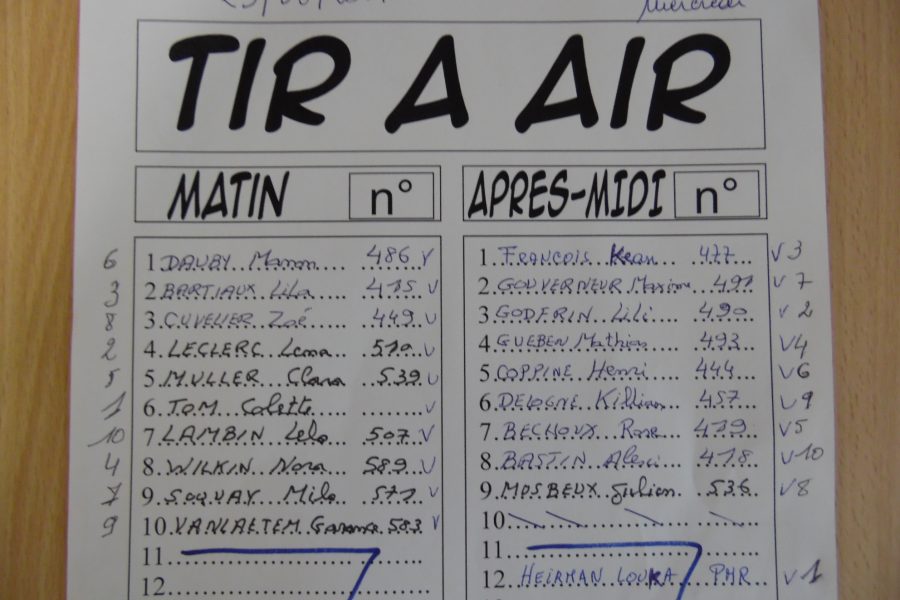 Mercredi
TIR A AIR
MATIN n°
6 1 DAUBY Manon 486 V
3 2 BARTIAUX Lila 415 V
8 3. CUVELIER Zoé 449 V
2 4. LECLERC Lena 510 V
5 5. MULLER Clara 539 V
1 6. TOM Colette V
10 7. LAMBIN Lelo 507 V
4 8. WILKIN Nora 589 V
7 9. SOQUAY Milo 571 V
9 10. VANLAETEM 583 V
11
12
APRES-MIDI n°
1. FRANCOIS Kean 477 V 3
2. GOUVERNEUR Maxime 491 V 7
3. GODFRIN Lili 490 V 2
4. GUEBEN Mathias 493 V 4
5. COPPINE Henri 444 V 6
6. DELOGNE Killian 457 V 9
7. BECHOUX Rose 479 V 5
8. BASTIN 418 V 10
9. MOSBEUX Julien 536 V 8
10
11
12 HEIRMAN LOUKA PMR V 1